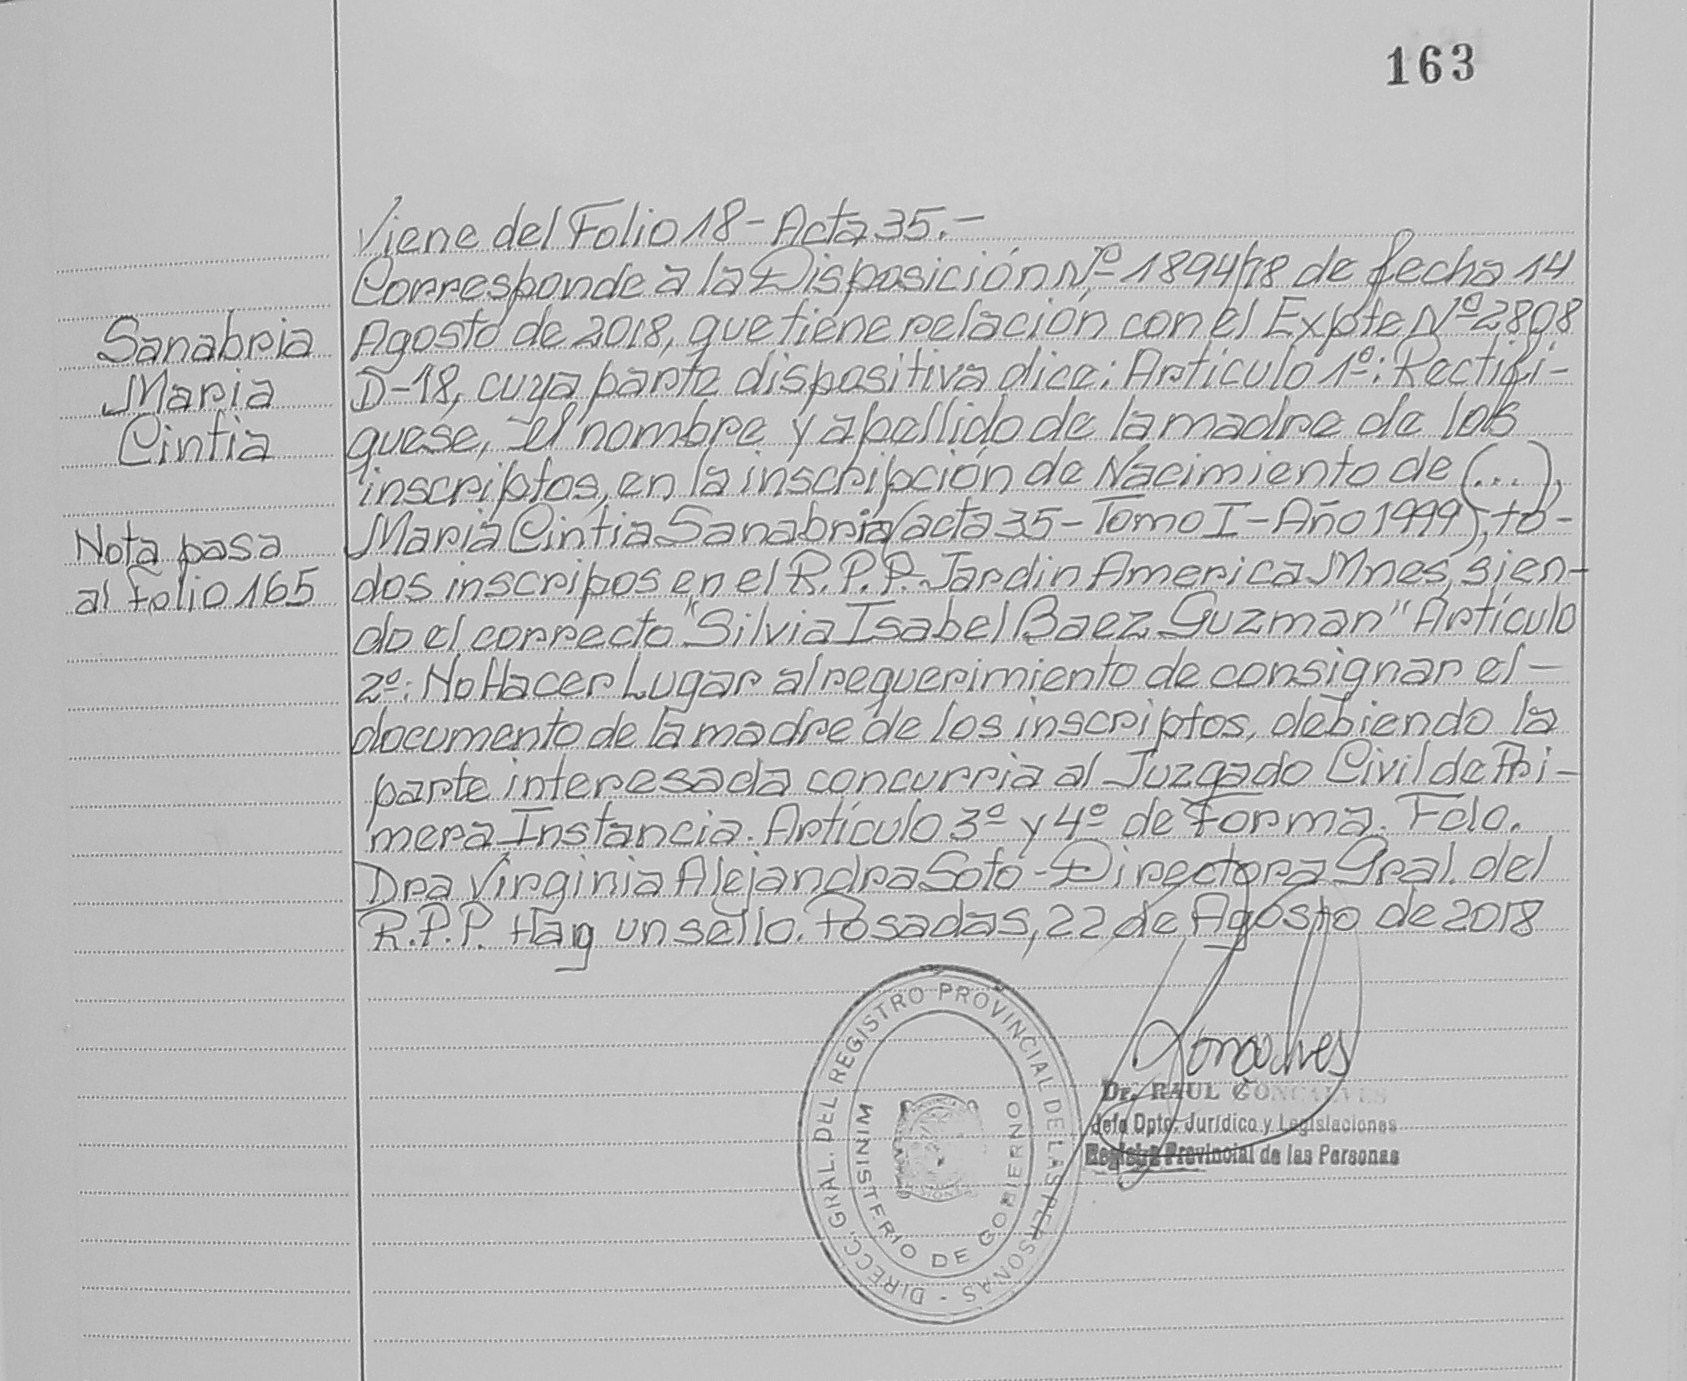 163
Viene del Folio 18 - Acta 35.-
Corresponde a la Disposición Nº 1894/18 de fecha 14
Agosto de 2018, que tiene relación con el Expte Nº 2808
D-18, cuya parte dispositiva dice: Artículo 1º: Rectifi-
quese, el nombre y apellido de la madre de los
inscriptos, en la inscripción de Nacimiento de (...),
Maria Cintia Sanabria (acta 35 - Tomo I - Año 1999), to-
dos inscripos en el R.P.P. Jardin America Mnes, sien-
do el correcto "Silvia Isabel Baez Guzman" Artículo
2º: No Hacer Lugar al requerimiento de consignar el -
documento de la madre de los inscriptos, debiendo la
parte interesada concurria al Juzgado Civil de Pri-
mera Instancia. Artículo 3º y 4º de Forma. Fdo.
Dra Virginia Alejandra Soto - Directora Gral. del
R.P.P. Hay un sello. Posadas, 22 de Agosto de 2018
Sanabria
Maria
Cintia
Nota pasa
al Folio 165
DIRECC. GRAL. DEL REGISTRO PROVINCIAL DE LAS PERSONAS -
MINISTERIO DE GOBIERNO
Goncalves
Dr. RAUL GONCALVES
Jefe Dpto. Jurídico y Legislaciones
Registro Provincial de las Personas